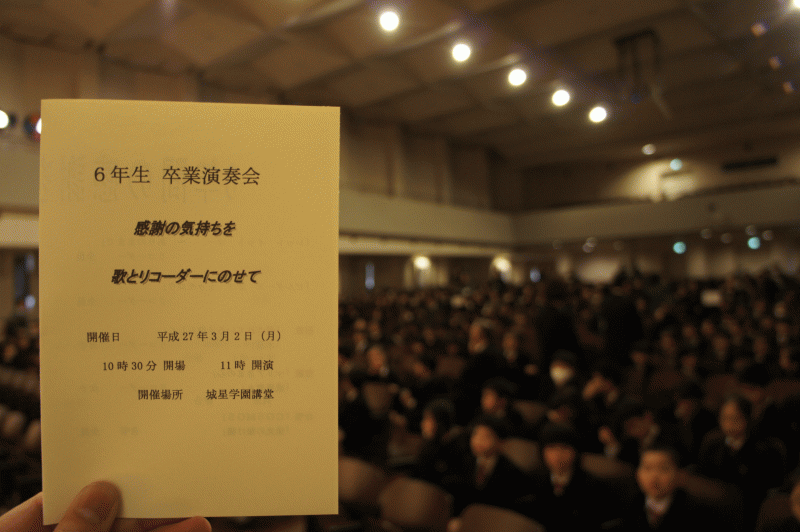 6年生 卒業演奏会
感謝の気持ちを
歌とリコーダーにのせて
開催日 平成27年3月2日(月)
10時30分 開場 11時 開演
開催場所 城星学園講堂